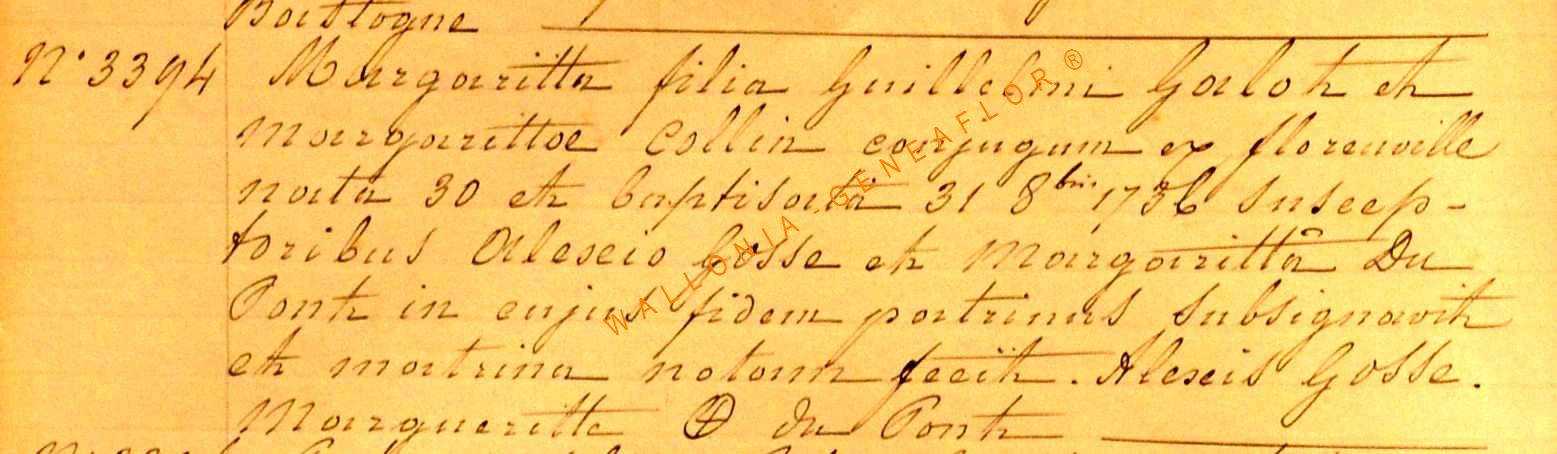 Bastogne
N° 3394 Margaritta filia Guillelmi Galot et
Margarittae Collin conjugum ex florenville
nata 30 et baptisata 31 8bris 1736 suscep-
toribus Alexio Gosse et Margarittâ Du
Pont in cujus fidem patrinus subsignavit
et matrina notam fecit. Alexis Gosse.
Margueritte ⊕ du Pont
WALLONIA GENEAFLOR ®